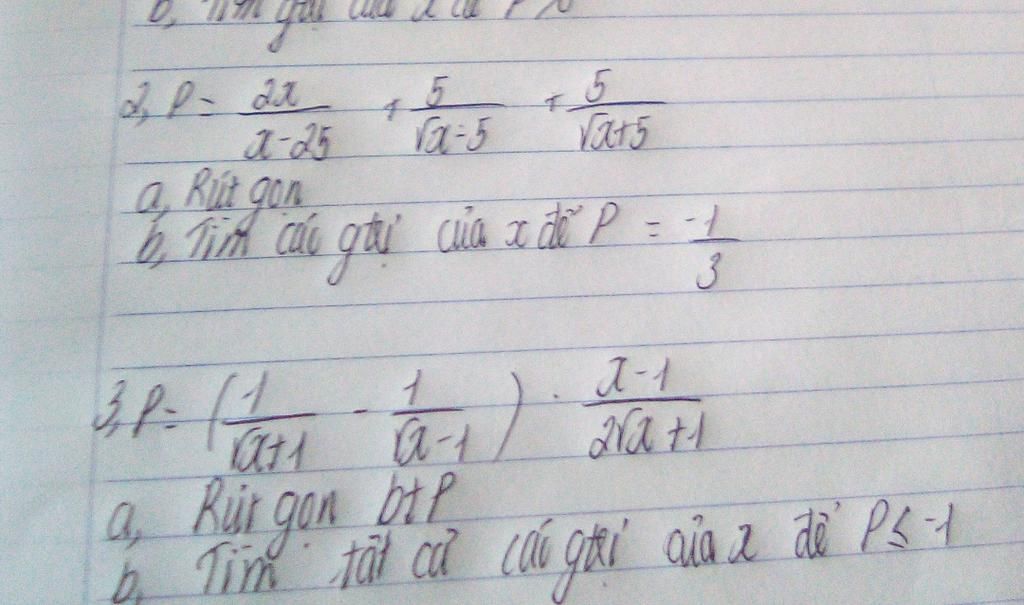 b, Tìm gtrị của x để P
2, P = 2x/(x-25) + 5/(√x-5) + 5/(√x+5)
a, Rút gọn
b, Tìm các gtrị của x để P = -1/3
3, P = (1/(√x+1) - 1/(√x-1)) . (x-1)/(2√x+1)
a, Rút gọn bt P
b, Tìm tất cả các gtrị của x để P ≤ -1